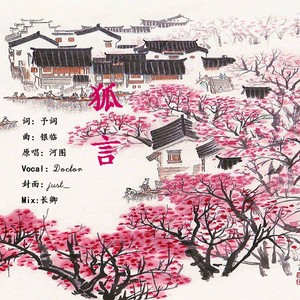 狐言
词：予词
曲：银临
原唱：河图
Vocal：Doctor
封面：just_
Mix:长卿